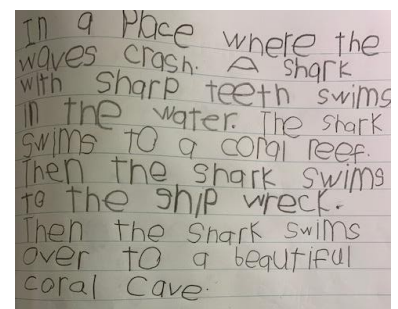 In a Place where the
waves crash. A shark
with sharp teeth swims
in the water. The shark
swims to a coral reef.
Then the shark swims
to the ship wreck.
Then the shark swims
over to a beautiful
coral cave.